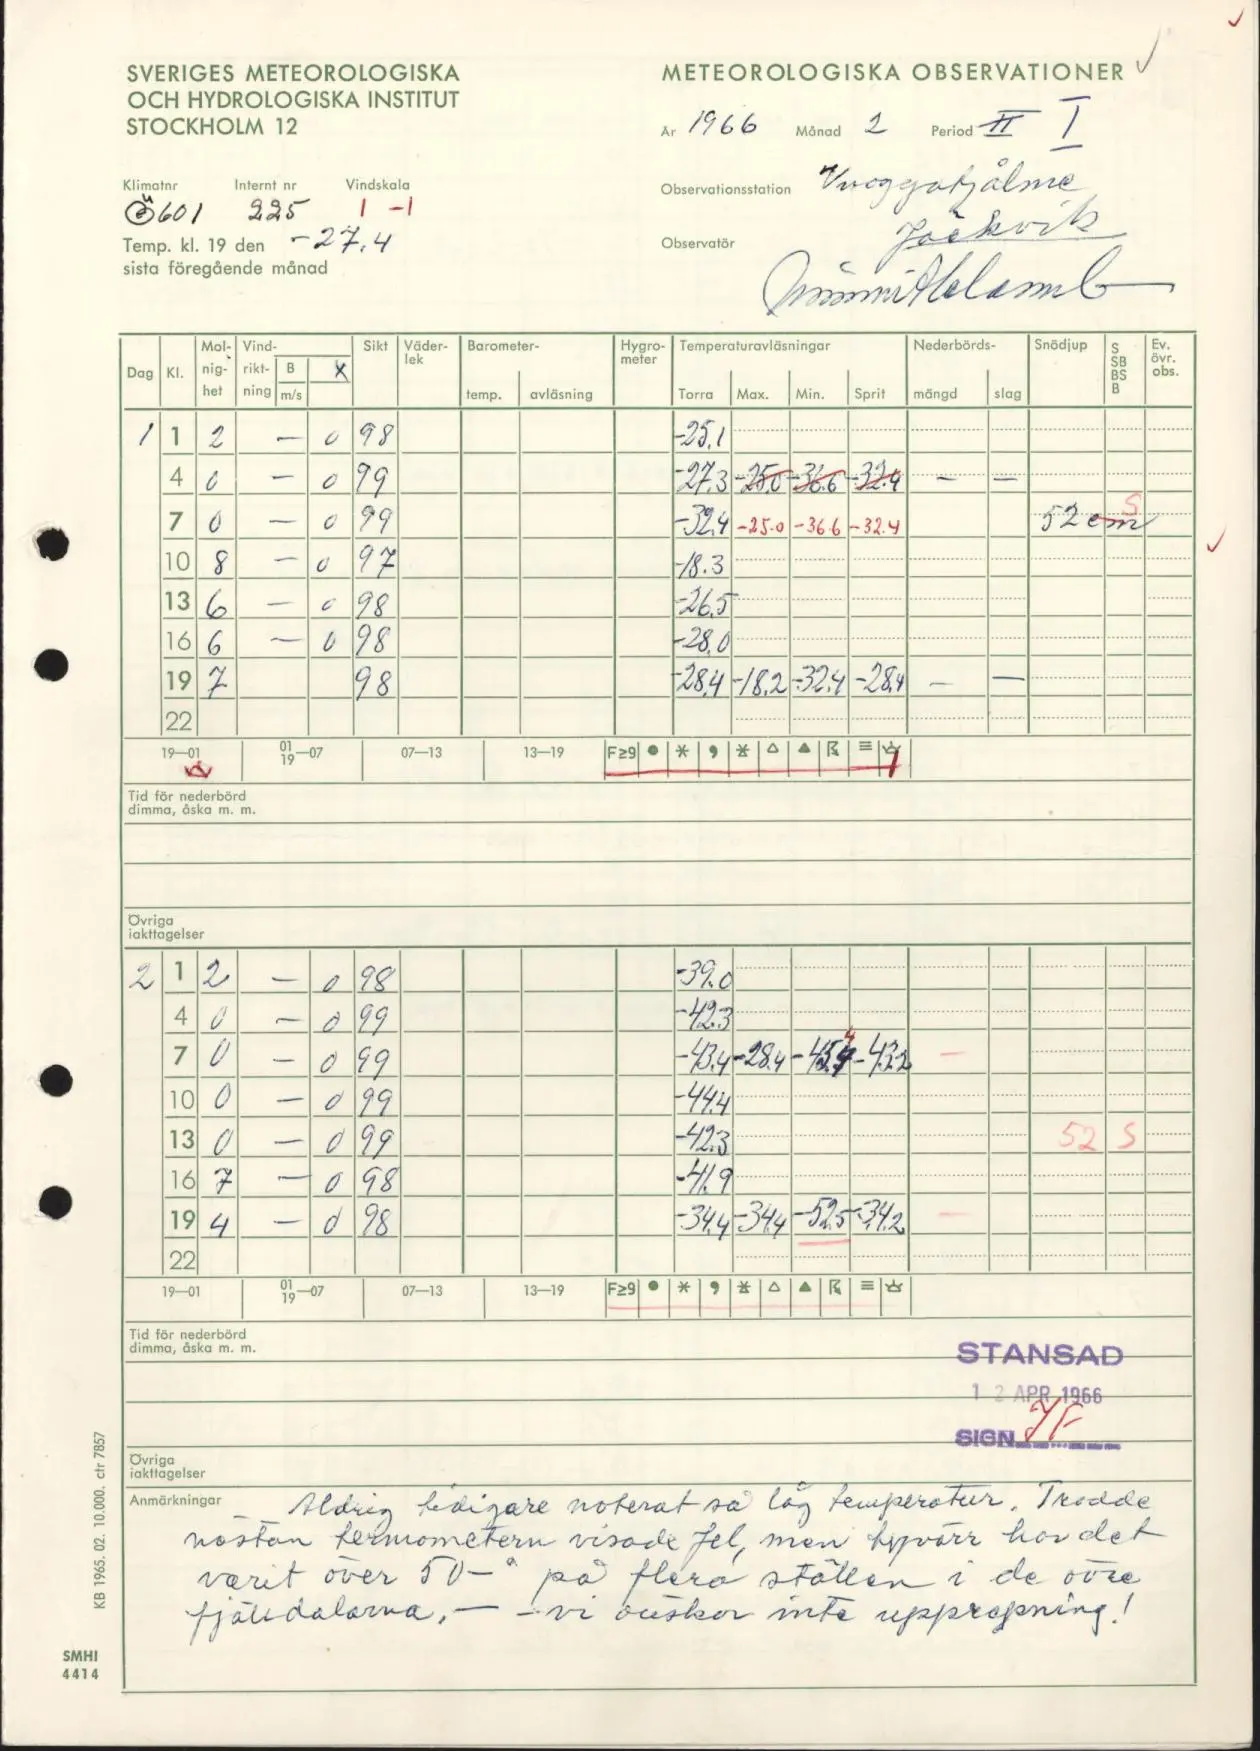 SVERIGES METEOROLOGISKA
OCH HYDROLOGISKA INSTITUT
STOCKHOLM 12
METEOROLOGISKA OBSERVATIONER
År 1966 Månad 2 Period II I
Klimatnr Internt nr Vindskala
Ö601 225 1 -1
Observationsstation Vuoggatjålme
Jäckvik
Temp. kl. 19 den -27,4
sista föregående månad
Observatör
Dag Kl. Mol-nig-het Vind-rikt-ning B m/s X Sikt Väder-lek Barometer- temp. avläsning Hygro-meter Temperaturavläsningar Torra Max. Min. Sprit Nederbörds- mängd slag Snödjup S SB BS B Ev. övr. obs.
1 1 2 — 0 98 -25,1
4 0 — 0 99 -27,3 -25,0 -36,6 -32,4 — —
7 0 — 0 99 -32,4 -25.0 -36.6 -32.4 52 cm S
10 8 — 0 97 -18.3
13 6 — 0 98 -26,5
16 6 — 0 98 -28,0
19 7 98 -28,4 -18,2 -32,4 -28,4 — —
22
19—01 01 19—07 07—13 13—19 F≥9
Tid för nederbörd
dimma, åska m. m.
Övriga
iakttagelser
2 1 2 — 0 98 -39,0
4 0 — 0 99 -42,3
7 0 — 0 99 -43,4 -28,4 -45,4 -43,2 —
10 0 — 0 99 -44,4
13 0 — 0 99 -42,3 52 S
16 7 — 0 98 -41,9
19 4 — 0 98 -34,4 -34,4 -52,5 -34,2 —
22
19—01 01 19—07 07—13 13—19 F≥9
Tid för nederbörd
dimma, åska m. m.
STANSAD
12 APR 1966
SIGN
Övriga
iakttagelser
Anmärkningar Aldrig tidigare noterat så låg temperatur. Trodde
nästan termometern visade fel, men tyvärr har det
varit över 50-° på flera ställen i de övre
fjälldalarna, — - vi önskar inte upprepning!
KB 1965. 02. 10.000. ctr 7857
SMHI
4414